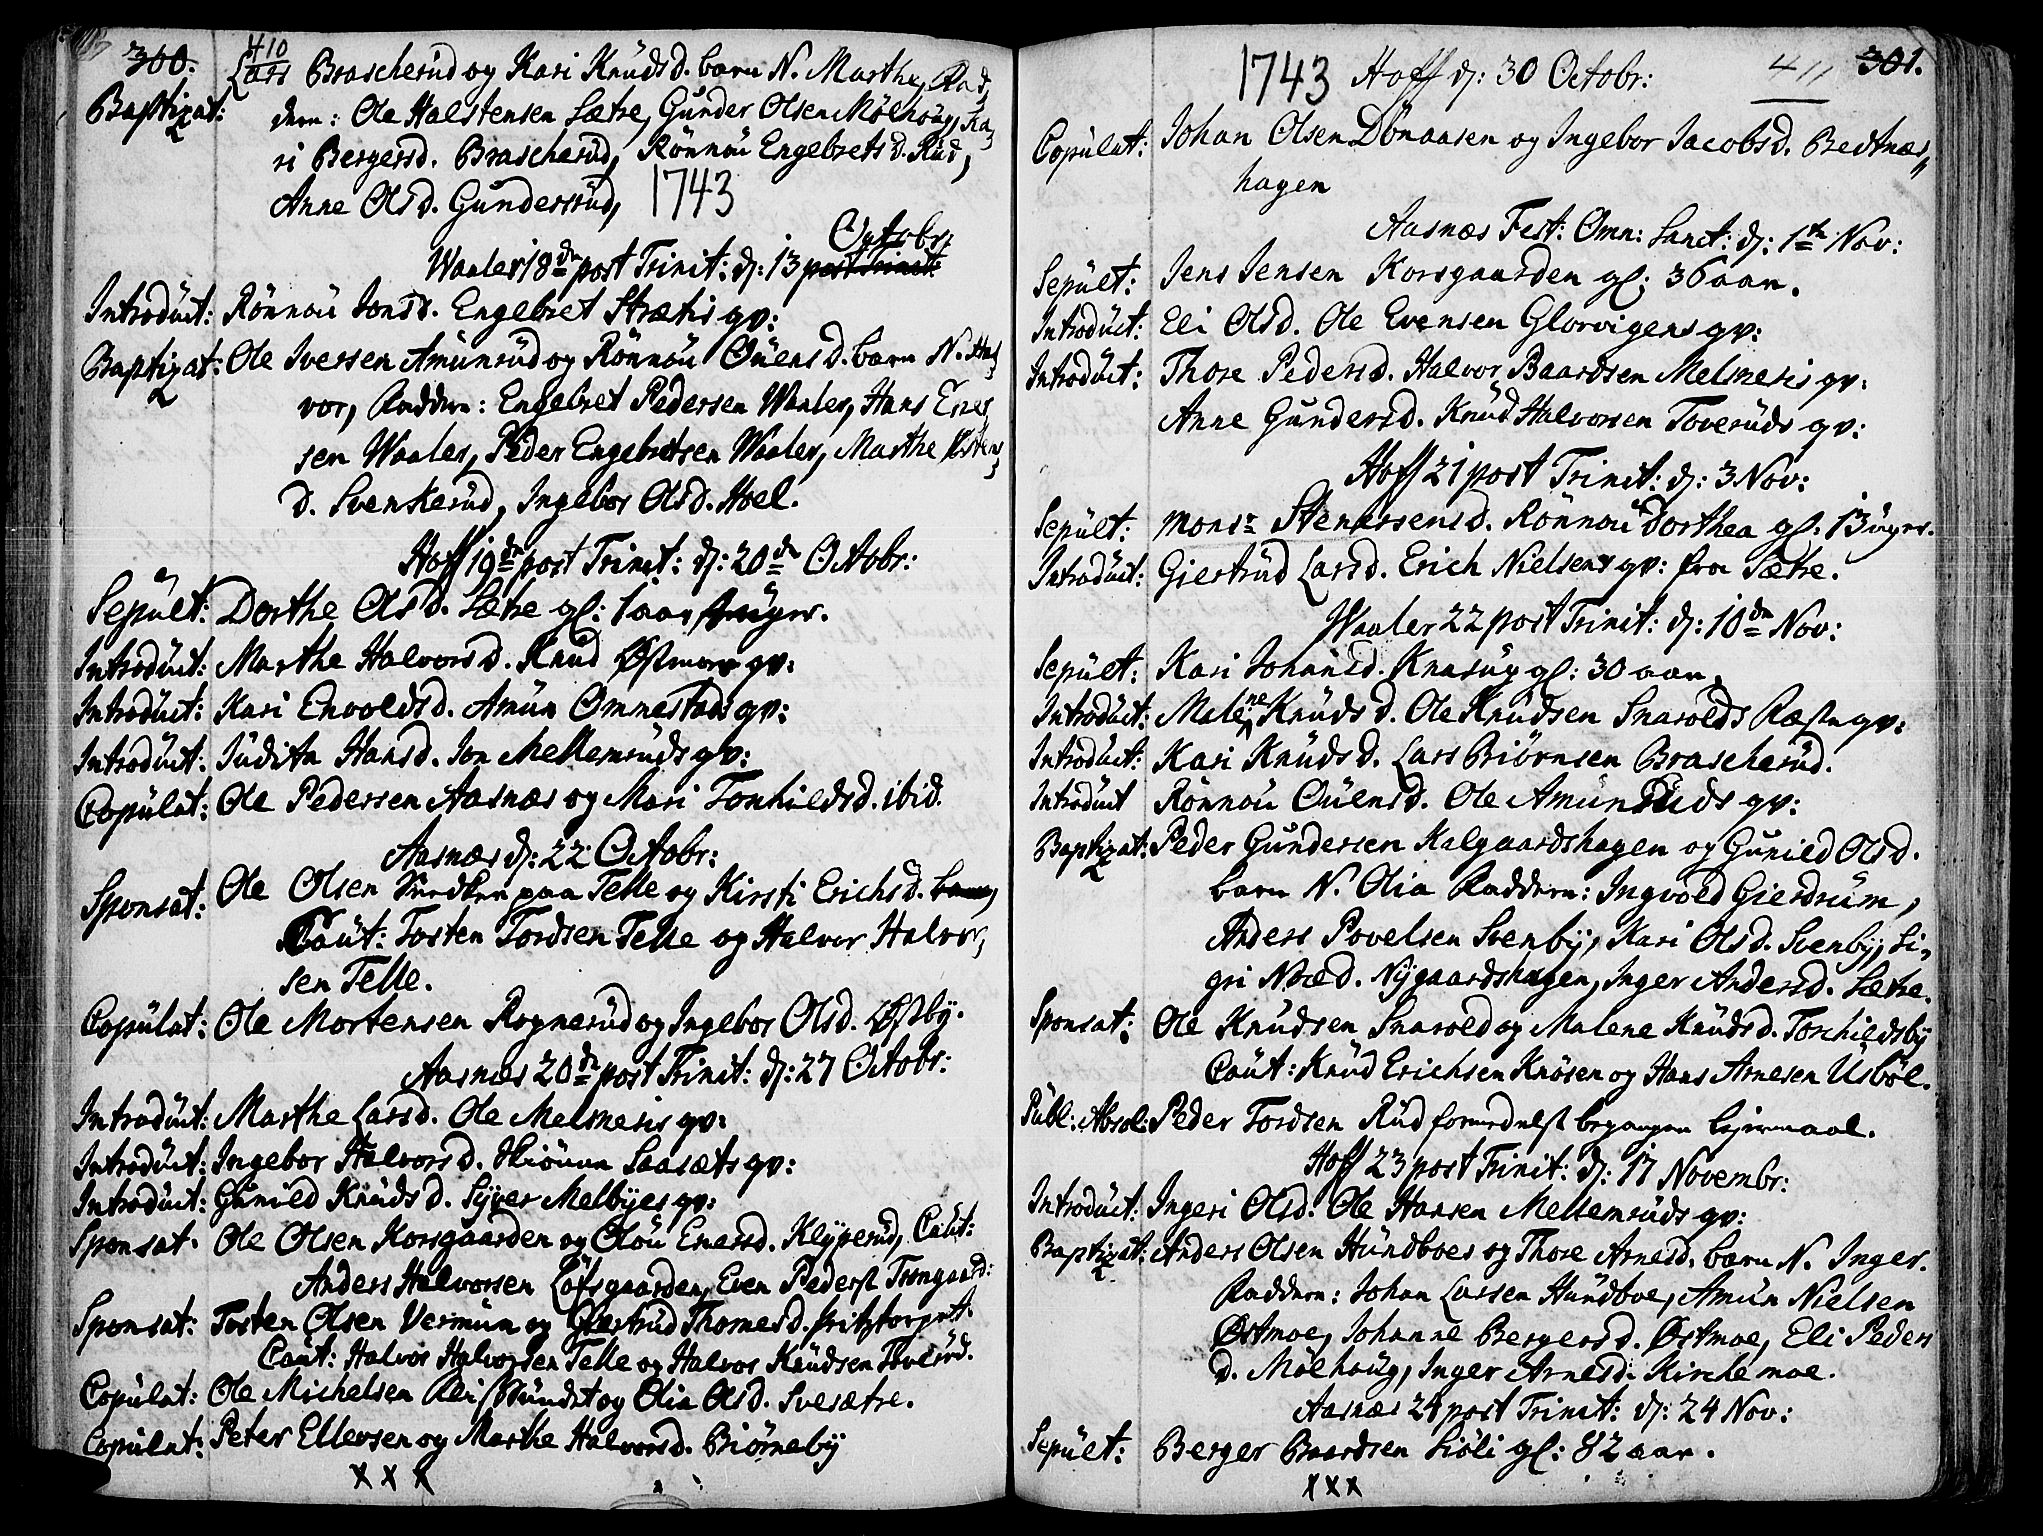 300.
410
Baptizat: Lars Brascherud og Kari Knudsd. barn N. Marthe, Fad,
dern: Ole Halstensen Sætre, Gunder Olsen Mølhoug, Ka,
ri Bergersd. Brascherud, Rönnou Engebretsd. Rud,
Anne Olsd. Gundersrud, 1743
Octobr:
Waaler 18 dn post Trinit: d: 13 post Trinit:
Introduct: Rönnou Jonsd. Engebret Strætis qv:
Baptizat: Ole Iversen Amunrud og Rönnou Ouensd. barn N. Hal,
vor, Faddern: Engebret Pedersen Waaler, Hans Ener,
sen Waaler, Peder Engebretsen Waaler, Marthe
d. Svenkerud, Ingebor Olsd. Hoel.
Hoff 19 dn post Trinit: d: 20 dn Octobr:
Sepult: Dorthe Olsd. Sætre gl: 1 aar
Introduct: Marthe Halvorsd. Knud Østmoes qv:
Introduct: Kari Envoldsd. Amun Ommestads qv:
Introduct: Judita Hansd. Jon Mellemruds qv:
Copulat: Ole Pedersen Aasnæs og Mari Torchildsd. ibid.
Aasnæs d: 22 Octobr:
Sponsat: Ole Olsen Snedker paa Telle og Kirsti Erichsd.
Caut: Tosten Tordsen Telle og Halvor Halvor,
sen Telle.
Copulat: Ole Mortensen Rognerud og Ingebor Olsd. Østby.
Aasnæs 20 dn post Trinit: d: 27 Octobr:
Introduct: Marthe Larsd. Ole Melmeris qv:
Introduct: Ingebor Halvorsd. Saasæts qv:
Introduct: Gunild Knudsd. Syver Melbyes qv:
Sponsat: Ole Olsen Korsgaarden og Olou Enersd. Klyperud, Caut:
Anders Halvorsen Löfsgaarden, Even Peders: Trongaard:
Sponsat: Tosten Olsen Vermun og Giertrud Thomesd.
Caut: Halvor Halvorsen Telle og Halvor Knudsen Toverud.
Copulat: Ole Michelsen og Olia Olsd. Svesætre.
Copulat: Peter Ellevsen og Marthe Halvorsd. Biørneby
x x x
1743 Hoff d: 30 Octobr: 411 301.
Copulat: Johan Olsen Dönaasen og Ingebor Jacobsd. Bedtnæs,,
hagen
Aasnæs Fest: Omn: Sanct: d: 1te Nov:
Sepult: Jens Jensen Korsgaarden gl: 36 aar.
Introduct: Eli Olsd. Ole Evensen Glorvigens qv:
Introduct: Thore Pedersd. Halvor Baardsen Melmeris qv:
Anne Gundersd. Knud Halvorsen Toveruds qv:
Hoff 21 post Trinit: d: 3 Nov:
Sepult: Monsr Stenersens d. Rönnou Dorthea gl: 13 uger.
Introduct: Giertrud Larsd. Erich Nielsens qv: fra Sætre.
Waaler 22 post Trinit: d: 10 dn Nov:
Sepult: Kari Johansd. Knasug gl: 30 aar.
Introduct: Malene Knudsd. Ole Knudsen Snarolds Fæste qv:
Introduct: Kari Knudsd. Lars Biörnsen Brascherud.
Introduct Rönnou Ouensd. Ole Amunruds qv:
Baptizat: Peder Gundersen Kalgaardshagen og Gunild Olsd.
barn N. Olia Faddern: Ingvold Gierdrum,
Anders Povelsen Svenby, Kari Olsd. Svenby, Si,
gri Noæd. Nygaardshagen, Inger Andersd. Sætre.
Sponsat: Ole Knudsen Snarold og Malene Knudsd. Torchildsby
Caut: Knud Erichsen Knösen og Hans Arnesen Usböl.
Publ: Absol: Peder Tordsen Rud formedelst begangen Leiermaal.
Hoff 23 post Trinit: d: 17 Novembr:
Introduct: Ingeri Olsd. Ole Hansen Mellemruds qv:
Baptizat: Anders Olsen Hundboes og Thore Arnesd. barn N. Inger.
Faddern: Johan Larsen Hundboe, Amun Nielsen
Østmoe, Johanne Bergersd. Østmoe, Eli Peders
d. Mølhoug, Inger Arnesd. Kirchemoe.
Aasnæs 24 post Trinit: d: 24 Nov:
Sepult: Berger Baardsen Siöli gl: 82 aar.
x x x